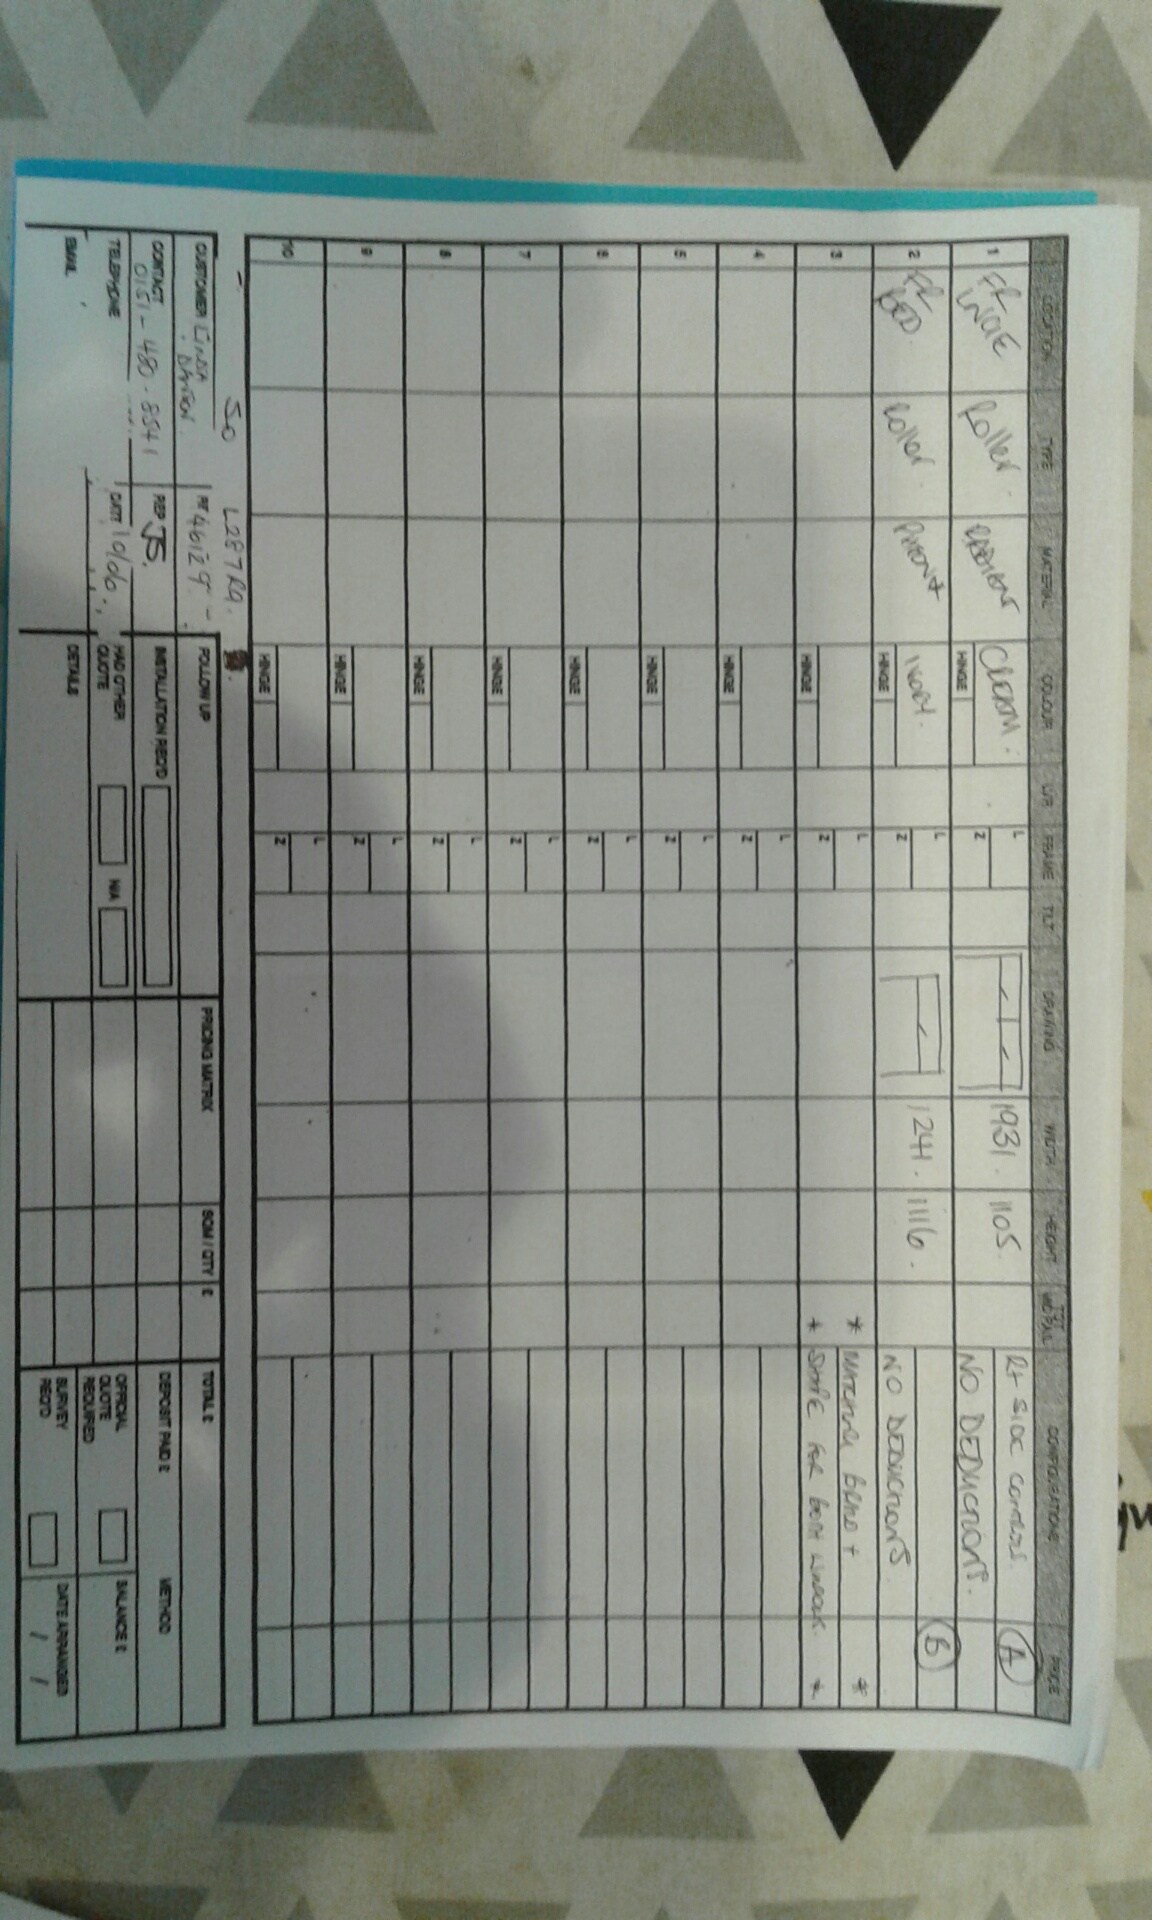 LOCATION TYPE MATERIAL COLOUR L/R FRAME TILT DRAWING WIDTH HEIGHT CONFIGURATIONS PRICE
1 Roller CREAM L Z 1931. 1105. Rt SIDE CONTROLS. A
HINGE NO DEDUCTIONS.
2 BED. Roller. L Z 1241. 1116. B
HINGE NO DEDUCTIONS.
3 HINGE L Z * *
* FOR BOTH *
4 HINGE L Z
5 HINGE L Z
6 HINGE L Z
7 HINGE L Z
8 HINGE L Z
9 HINGE L Z
10 HINGE L Z
50 L28
CUSTOMER LINDA
FOLLOW UP PRICING MATRIX SQM / QTY £ TOTAL £
CONTACT REP JS. INSTALLATION REQ'D DEPOSIT PAID £ METHOD
0151-480-8541
TELEPHONE DATE 10/06 HAD OTHER QUOTE N/A OFFICIAL QUOTE REQUIRED BALANCE £
EMAIL DETAILS SURVEY REQ'D DATE ARRANGED / /